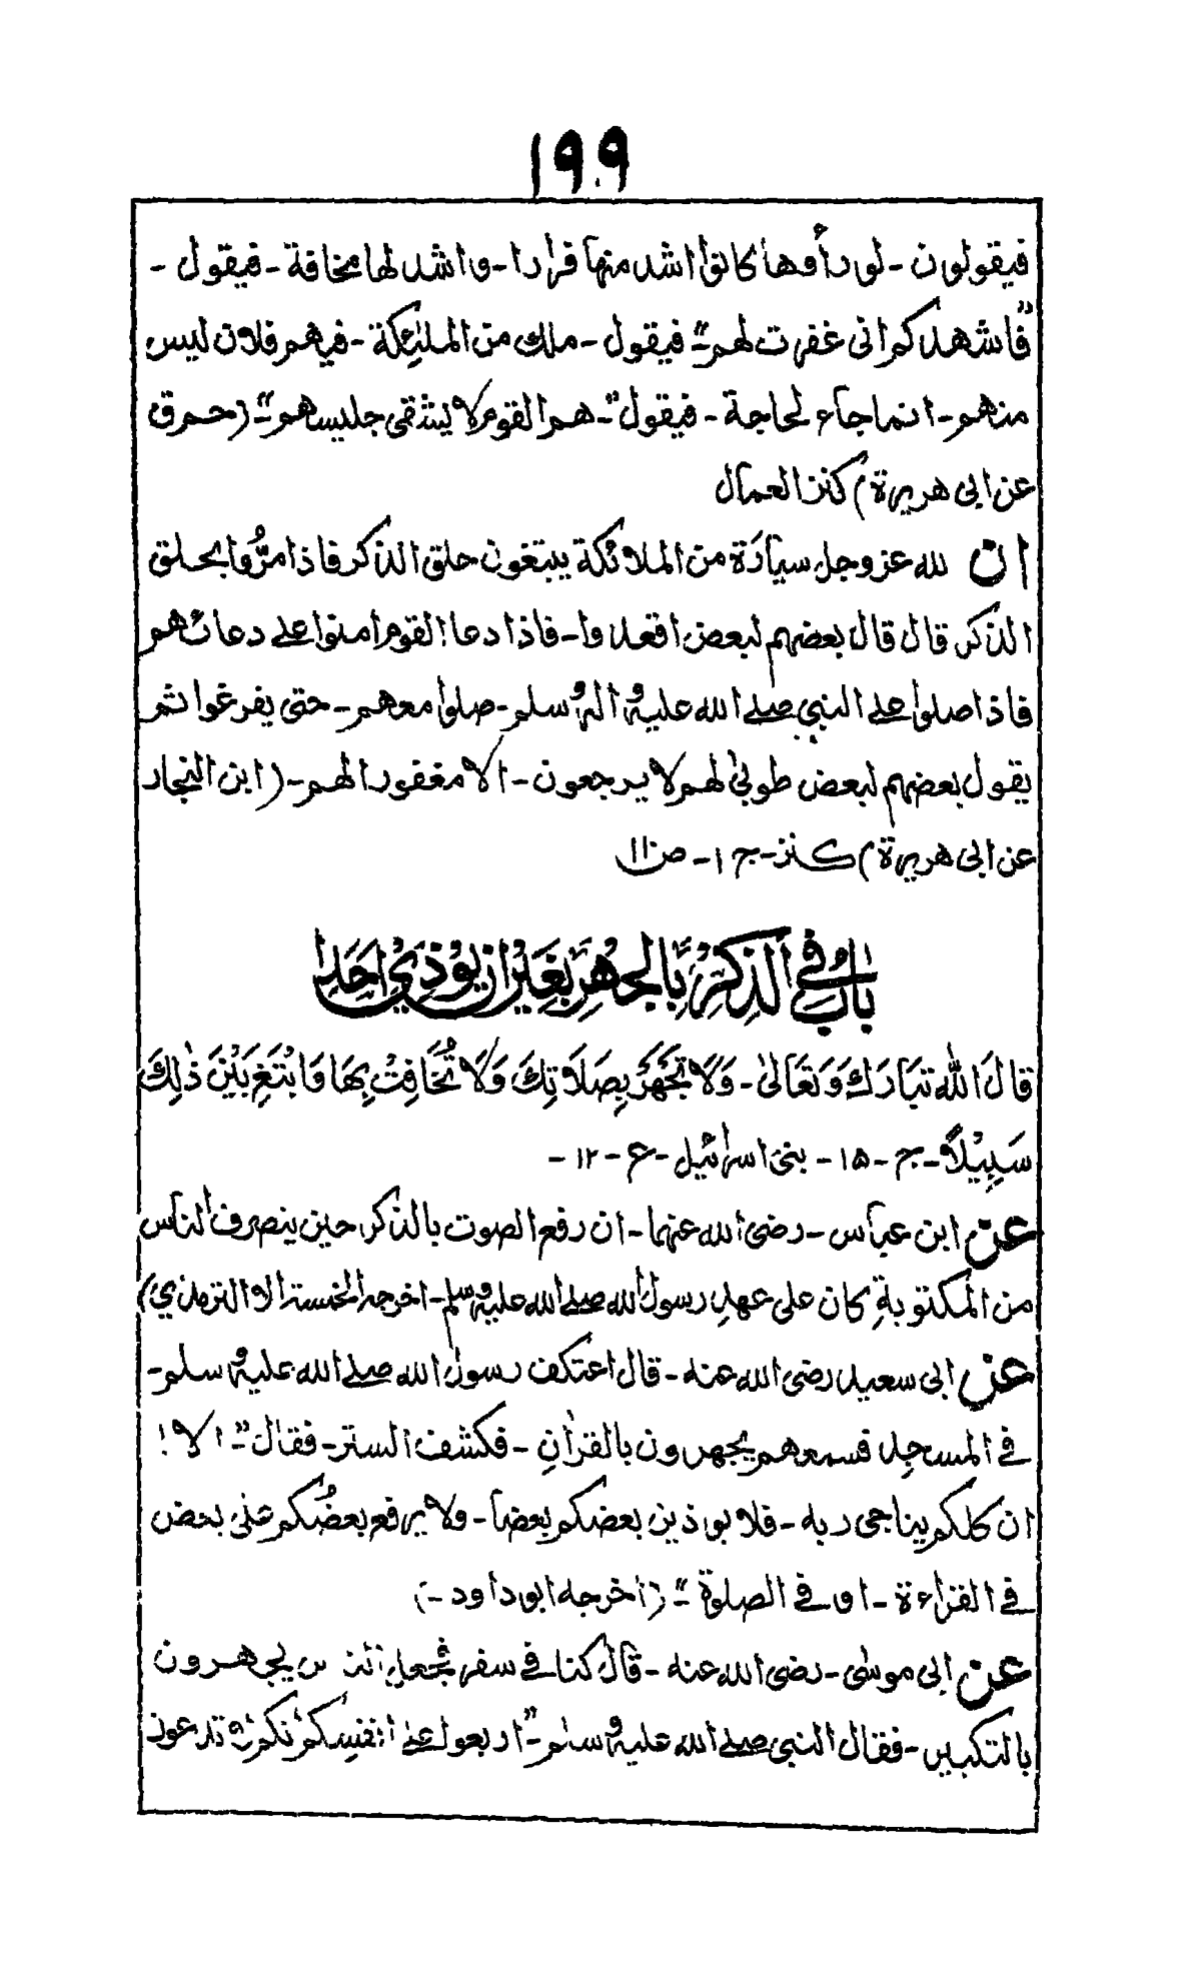 ١٩٩
فيقولون - لو رأوها كانوا اشد منها فرارا - واشد لها مخافة - فيقول -
"فاشهدكم انى غفرت لهم" - فيقول - ملك من الملٰئِكة - فيهم فلان ليس
منهم - انما جآء لحاجة - فيقول - "هم القوم لا يشقى جليسهم" - (حم ق
عن ابى هريرة) كنز العمال
ان لله عز وجل سيارَة من الملائكة يبتغون حلق الذكر فاذا مرُّوا بحلق
الذكر قال قال بعضهم لبعض اقعدوا - فاذا دعا القوم امنوا على دعائهم
فاذا صلوا على النبي صلى الله عليه واله وسلم - صلوا معهم - حتى يفرغوا ثم
يقول بعضهم لبعض طوبىٰ لهم لا يرجعون - الا مغفورا لهم - (ابن النجار
عن ابى هريرة) كنز - ج ١ - ص١١
بَابُ فِي الذِكِرْ بِالجَهْرِ بغَيْر ان يوْذِيْ احَدا
قالَ اللّٰه تبَارَكَ وَتَعَالىٰ - وَلَا تَجْهَرْ بِصَلَاتِكَ وَلَا تُخَافِتْ بِهَا وَابْتَغِ بَيْنَ ذٰلِكَ
سَبِيْلًا - ج - ١٥ - بنى اسرائيل - ع - ١٢ -
عن ابن عباس - رضى الله عنهما - ان رفع الصوت بالذكر حين ينصرف الناس
من المكتوبةِ كان على عهدِ رسول الله صلى الله عليه وسلم - اخرجه الخمسة الا الترمذي)
عن ابى سعيد رضى الله عنه - قال اعتكف رسول الله صلى الله عليه وسلم -
في المسجدِ فسمعهم يجهرون بالقرٰانِ - فكشف الستر - فقال - "الا!
ان كلكم يناجى ربه - فلا يوذين بعضكم بعضا - ولا يرفع بعضُكم على بعض
في القراءة - او في الصلوة" - (اخرجه ابو داود -)
عن ابى موسٰى - رضى الله عنه - قال كنا في سفر فجعل الناس يجهرون
بالتكبير - فقال النبي صلى الله عليه وسلم - "اربعوا على انفسِكم تدعون